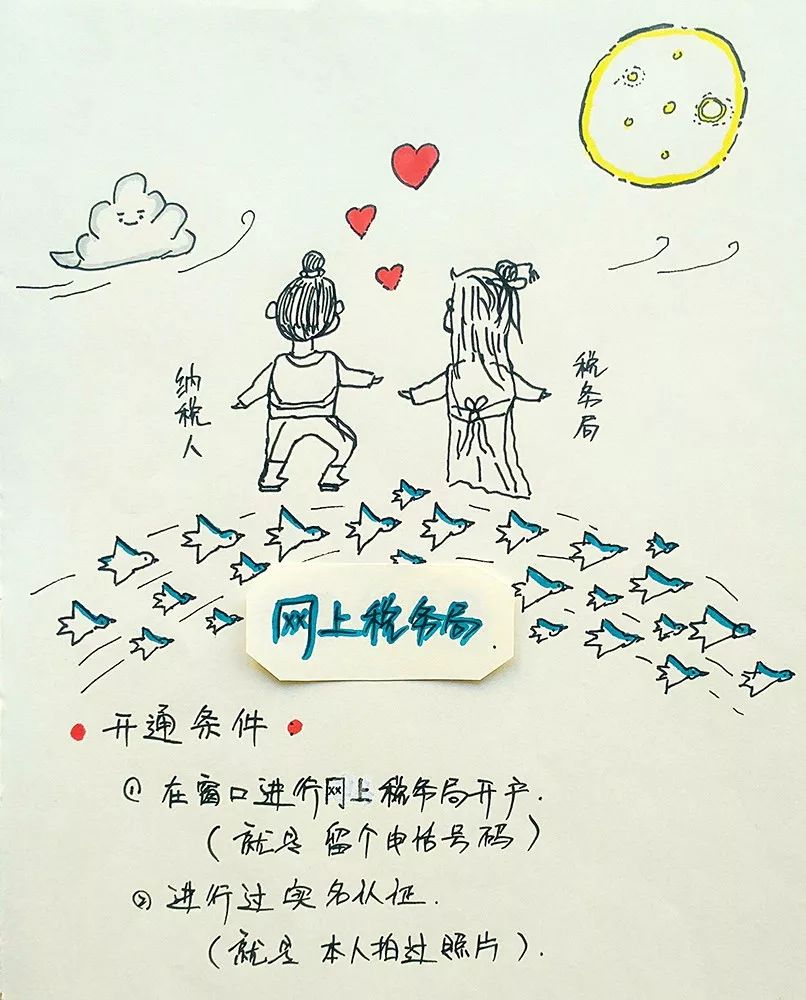 纳税人
税务局
网上税务局.
开通条件
① 在窗口进行网上税务局开户.
(就是 留个电话号码)
② 进行过实名认证.
(就是 本人拍过照片).